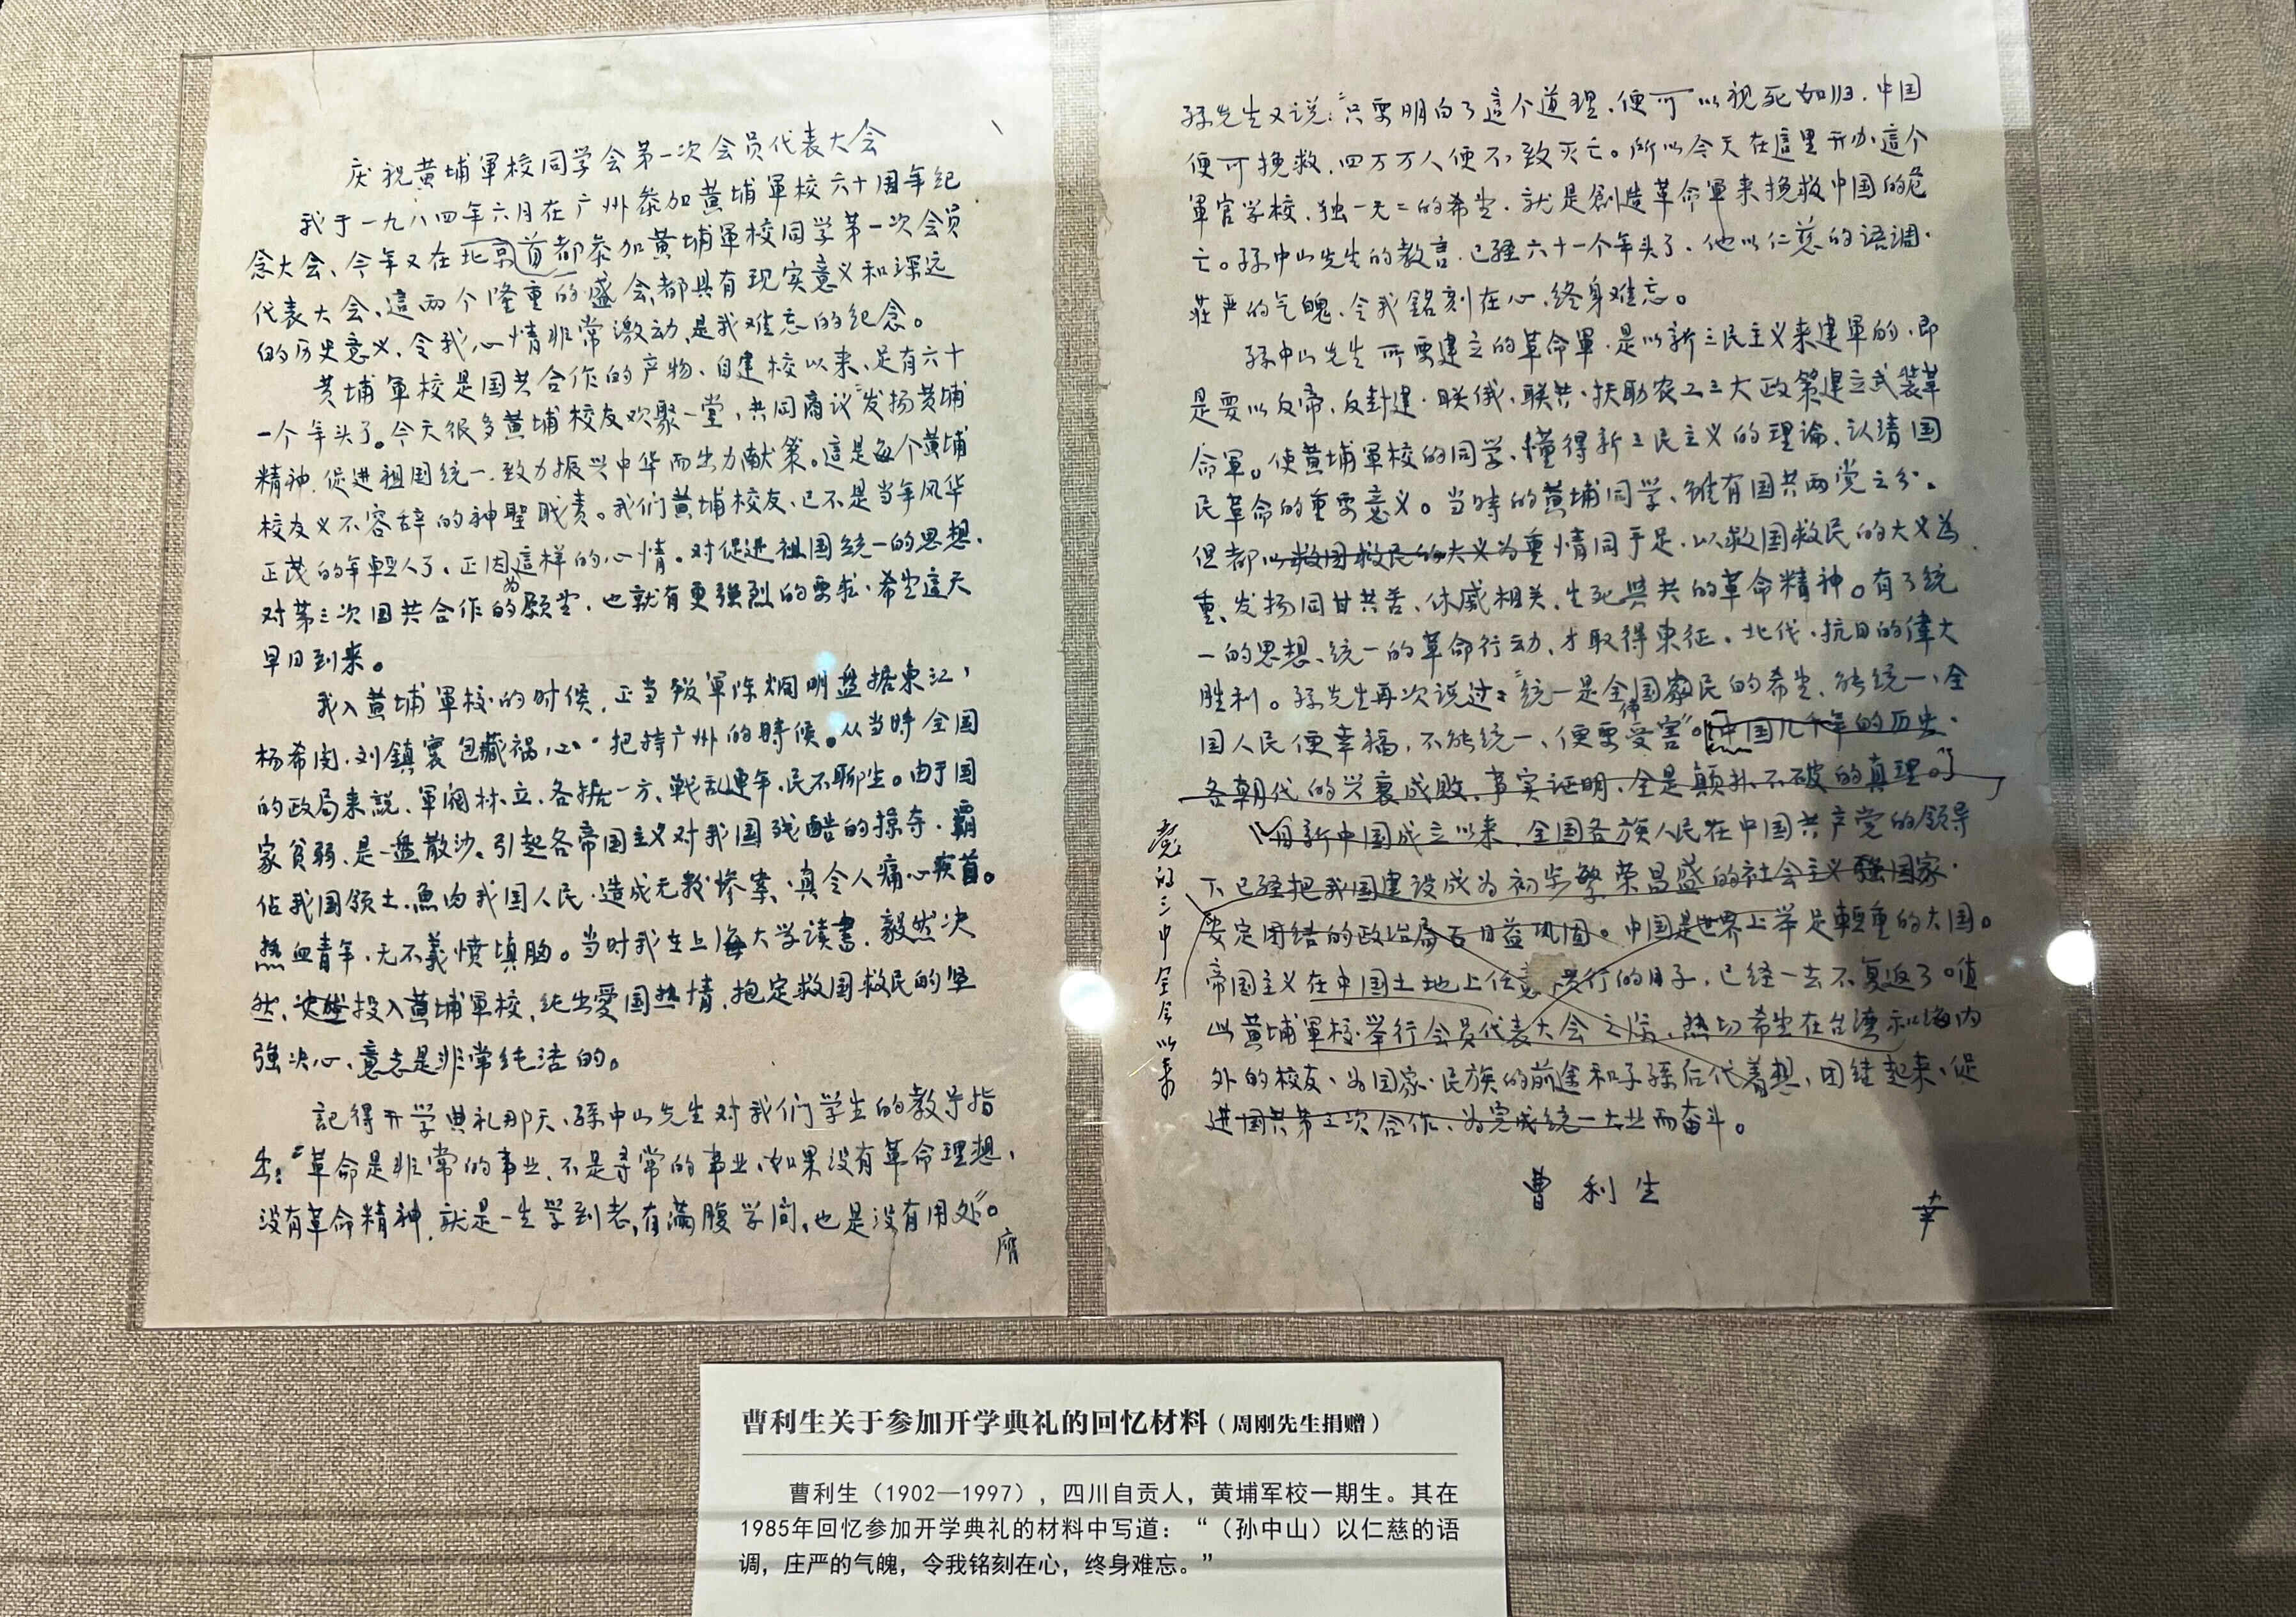 庆祝黄埔軍校同学会第一次会员代表大会
我于一九八四年六月在广州参加黄埔軍校六十周年纪
念大会、今年又在北京首都参加黄埔軍校同学第一次会员
代表大会、這两个隆重的盛会,都具有现实意义和深远
的历史意义,令我心情非常激动,是我难忘的纪念。
黄埔軍校是国共合作的产物、自建校以来、足有六十
一个年头了。今天很多黄埔校友欢聚一堂,共同商议“发扬黄埔
精神,促进祖国统一,致力振兴中华而出力献策。這是每个黄埔
校友义不容辞的神聖职责。我们黄埔校友、已不是当年风华
正茂的年輕人了、正因為這样的心情。对促进祖国统一的思想.
对第三次国共合作的願望,也就有更强烈的要求,希望這天
早日到来。
我入黄埔軍校的时候,正当叛軍陈烱明盘据東江,
杨希闵.刘鎮寰包藏祸心.把持广州的時候。从当時全国
的政局来説、軍阀林立.各据一方、戦乱連年,民不聊生。由于国
家貧弱、是一盘散沙。引起各帝国主义对我国残酷的掠夺.霸
佔我国领土.魚肉我国人民.造成无数惨案、真令人痛心疾首。
热血青年,无不義憤填胸。当时我在上海大学读書,毅然决
然、决然投入黄埔軍校,纯出愛国热情,抱定救国救民的坚
強决心、意志是非常纯洁的。
記得开学典礼那天、孫中山先生对我们学生的教导指
出:“革命是非常的事业,不是寻常的事业,如果没有革命理想,
没有革命精神,就是一生学到老,有满腹学问,也是没有用处”。
孫先生又说:“只要明白了這个道理,便可以视死如归.中国
便可挽救,四万万人便不致灭亡。所以今天在這里开办這个
軍官学校,独一无二的希望,就是創造革命軍来挽救中国的危
亡。孫中山先生的教言,已经六十一个年头了、他以仁慈的语调.
荘严的气魄、令我銘刻在心,终身难忘。
孫中山先生所要建立的革命軍.是以新三民主义来建軍的.即
是要以反帝,反封建.联俄,联共,扶助农工三大政策建立武装革
命軍。使黄埔軍校的同学、懂得新三民主义的理論、认清国
民革命的重要意义。当時的黄埔同学、雖有国共两党之分.
但都以救国救民的大义为重情同手足.以救国救民的大义为
重、发扬同甘共苦、休戚相关、生死與共的革命精神。有了统
一的思想、统一的革命行动,才取得東征、北伐.抗日的偉大
胜利。孫先生再次说过:“统一是全国家民的希望、能统一、全
国人民便幸福,不能统一、便要受害”。中国几千年的历史.
各朝代的兴衰成败,事实证明,全是颠扑不破的真理。
自新中国成立以来,全国各族人民在中国共产党的領导
下已经把我国建设成为初步繁荣昌盛的社会主义强国家.
安定团结的政治局面日益巩固。中国是世界上举足輕重的大国。
帝国主义在中国土地上任意横行的日子,已经一去不复返了。值
此黄埔軍校举行会员代表大会之际,热切希望在台湾和海内
外的校友、为国家.民族的前途和子孫后代着想,团结起来,促
进国共第三次合作、为完成统一大业而奋斗。
的三中全会以来
曹利生
曹利生关于参加开学典礼的回忆材料（周刚先生捐赠）
曹利生（1902—1997），四川自贡人，黄埔军校一期生。其在
1985年回忆参加开学典礼的材料中写道：“（孙中山）以仁慈的语
调，庄严的气魄，令我铭刻在心，终身难忘。”